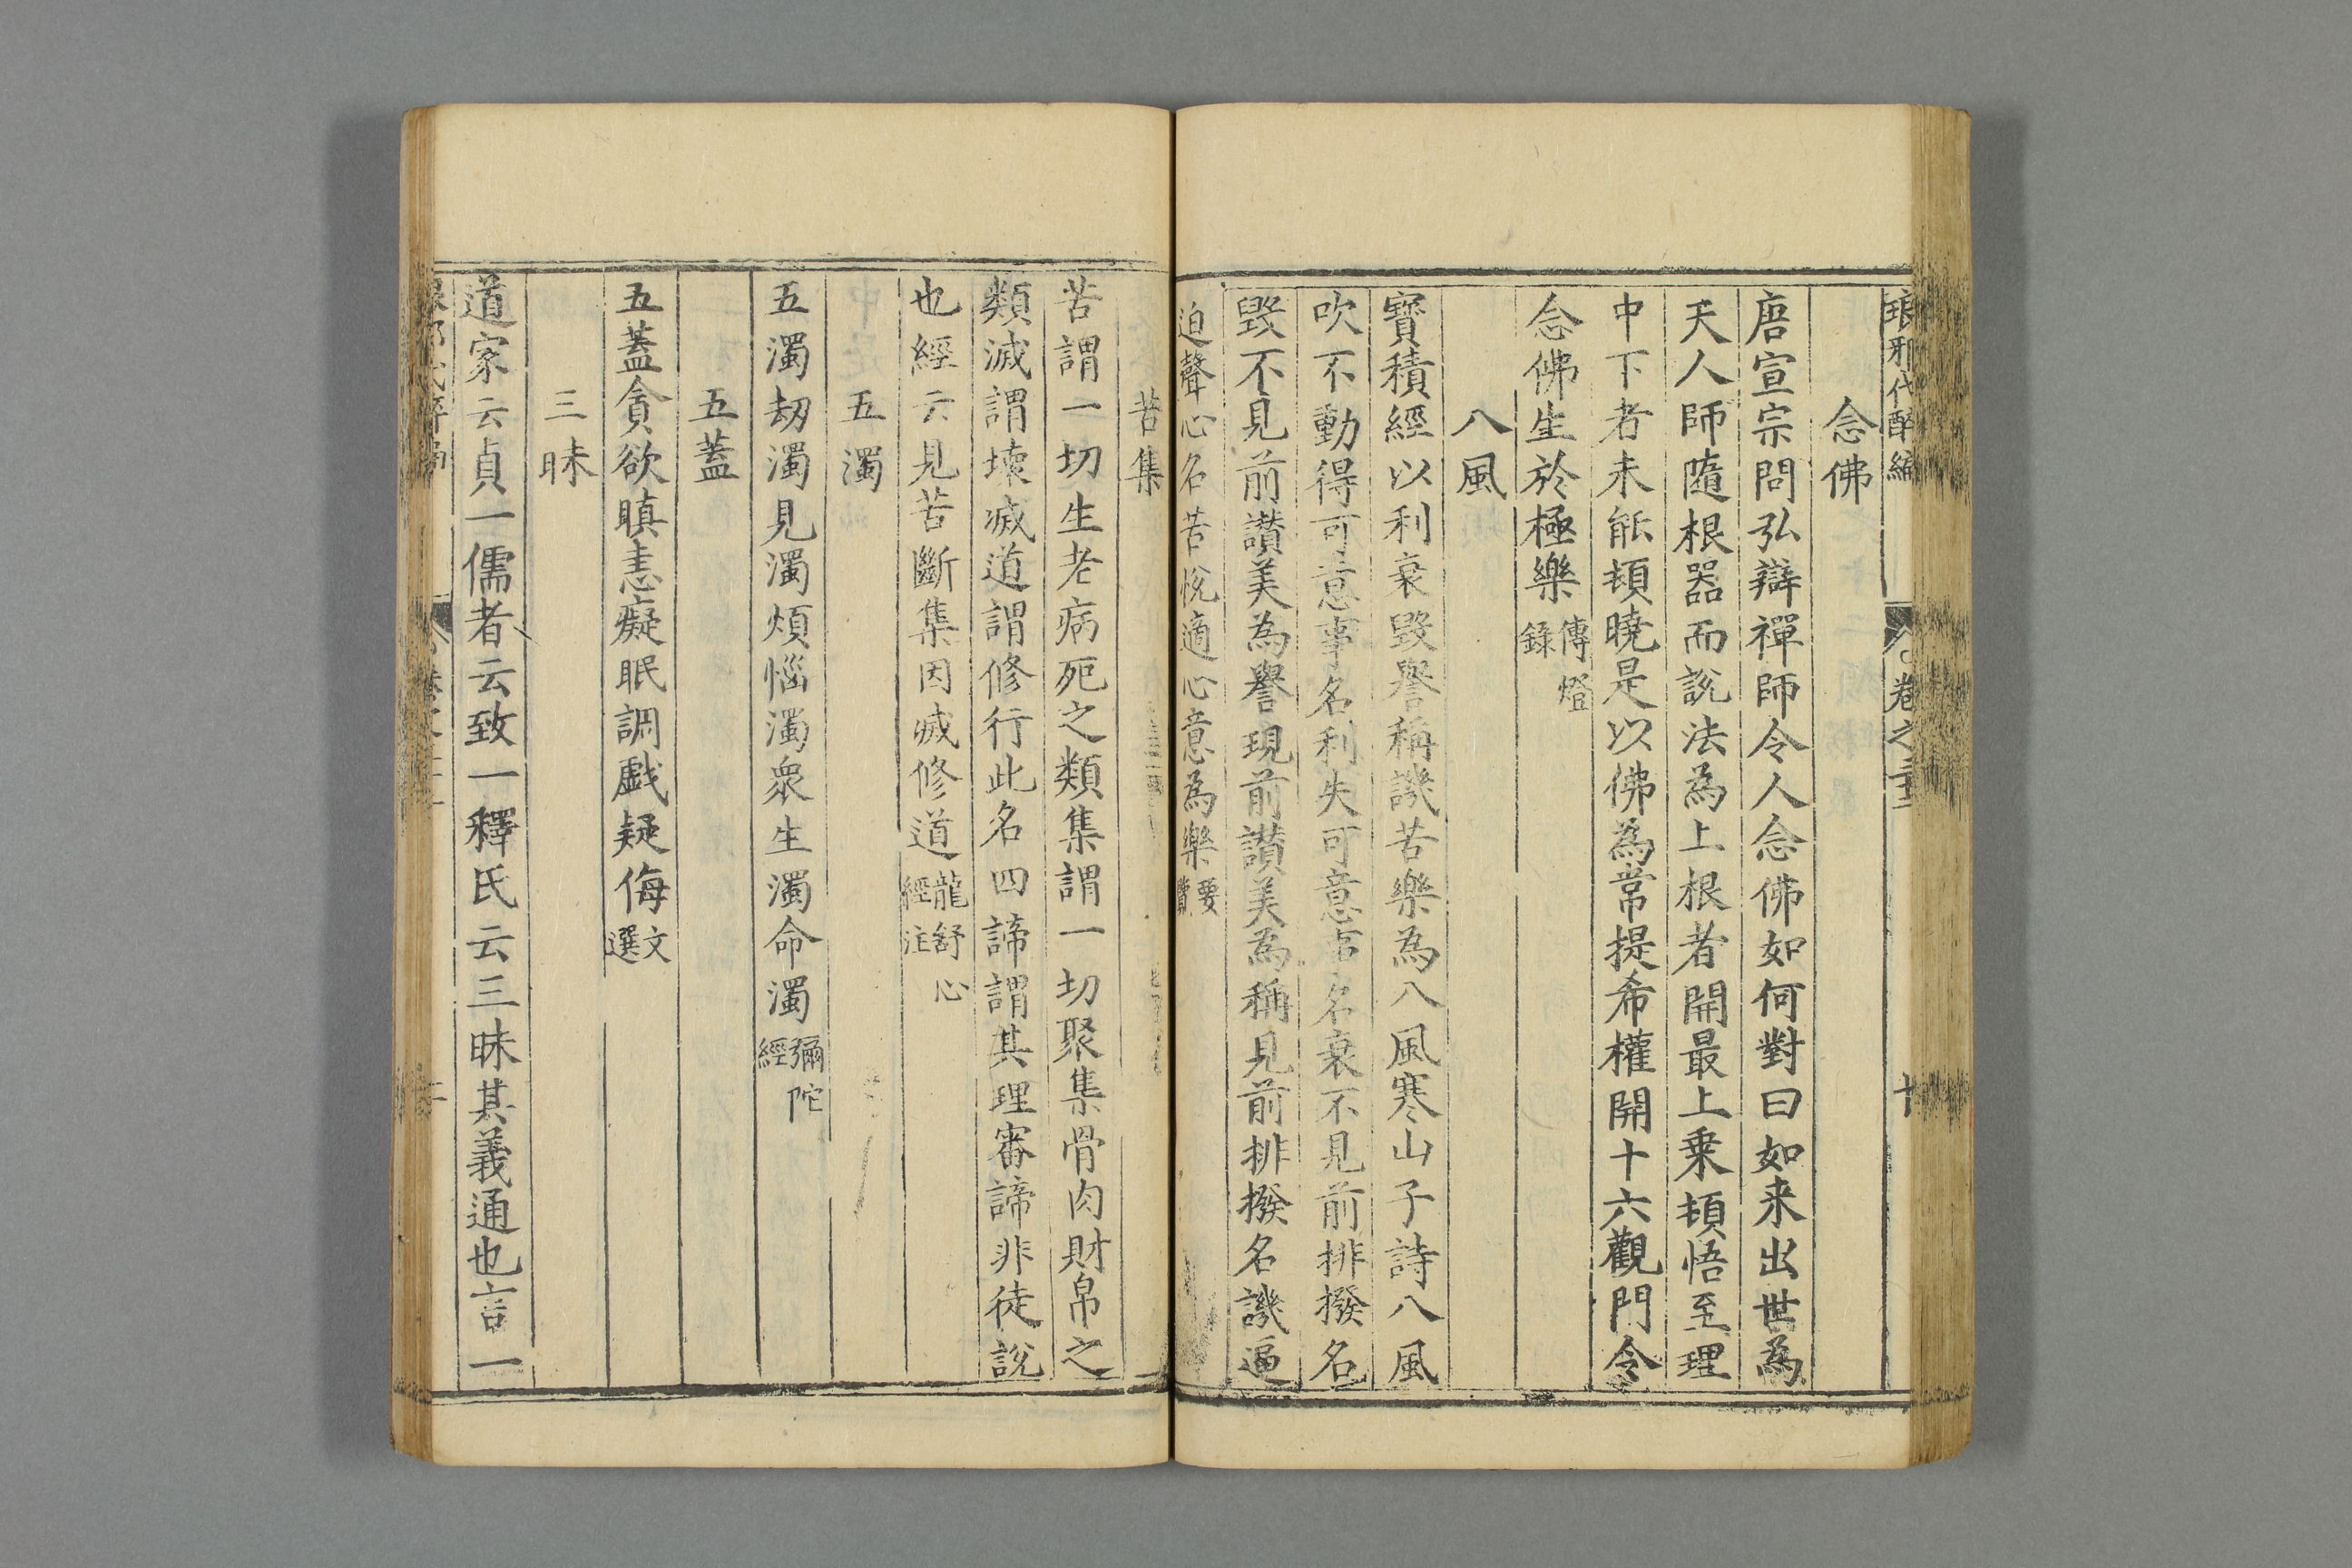 琅邪代醉編 卷之三十二 十
念佛
唐宣宗問弘辯禪師令人念佛如何對曰如来出世為
天人師隨根器而說法為上根者開最上乗頓悟至理
中下者未能頓曉是以佛為常提希權開十六觀門令
念佛生於極樂傳燈錄
八風
寳積經以利衰毀譽稱譏苦樂為八風寒山子詩八風
吹不動得可意事名利失可意事名衰不見前排撥名
毀不見前讃美為譽現前讃美為稱見前排撥名譏逼
迫聲心名苦悅適心意為樂要覽
苦集
苦謂一切生老病死之類集謂一切聚集骨肉財帛之
類滅謂壞滅道謂修行此名四諦謂其理審諦非徒說
也經云見苦斷集因滅修道龍舒心經注
五濁
五濁劫濁見濁煩惱濁衆生濁命濁彌陀經
五蓋
五蓋貪欲瞋恚癡眠調戯疑侮文選
三昧
道家云貞一儒者云致一釋氏云三昧其義通也言一